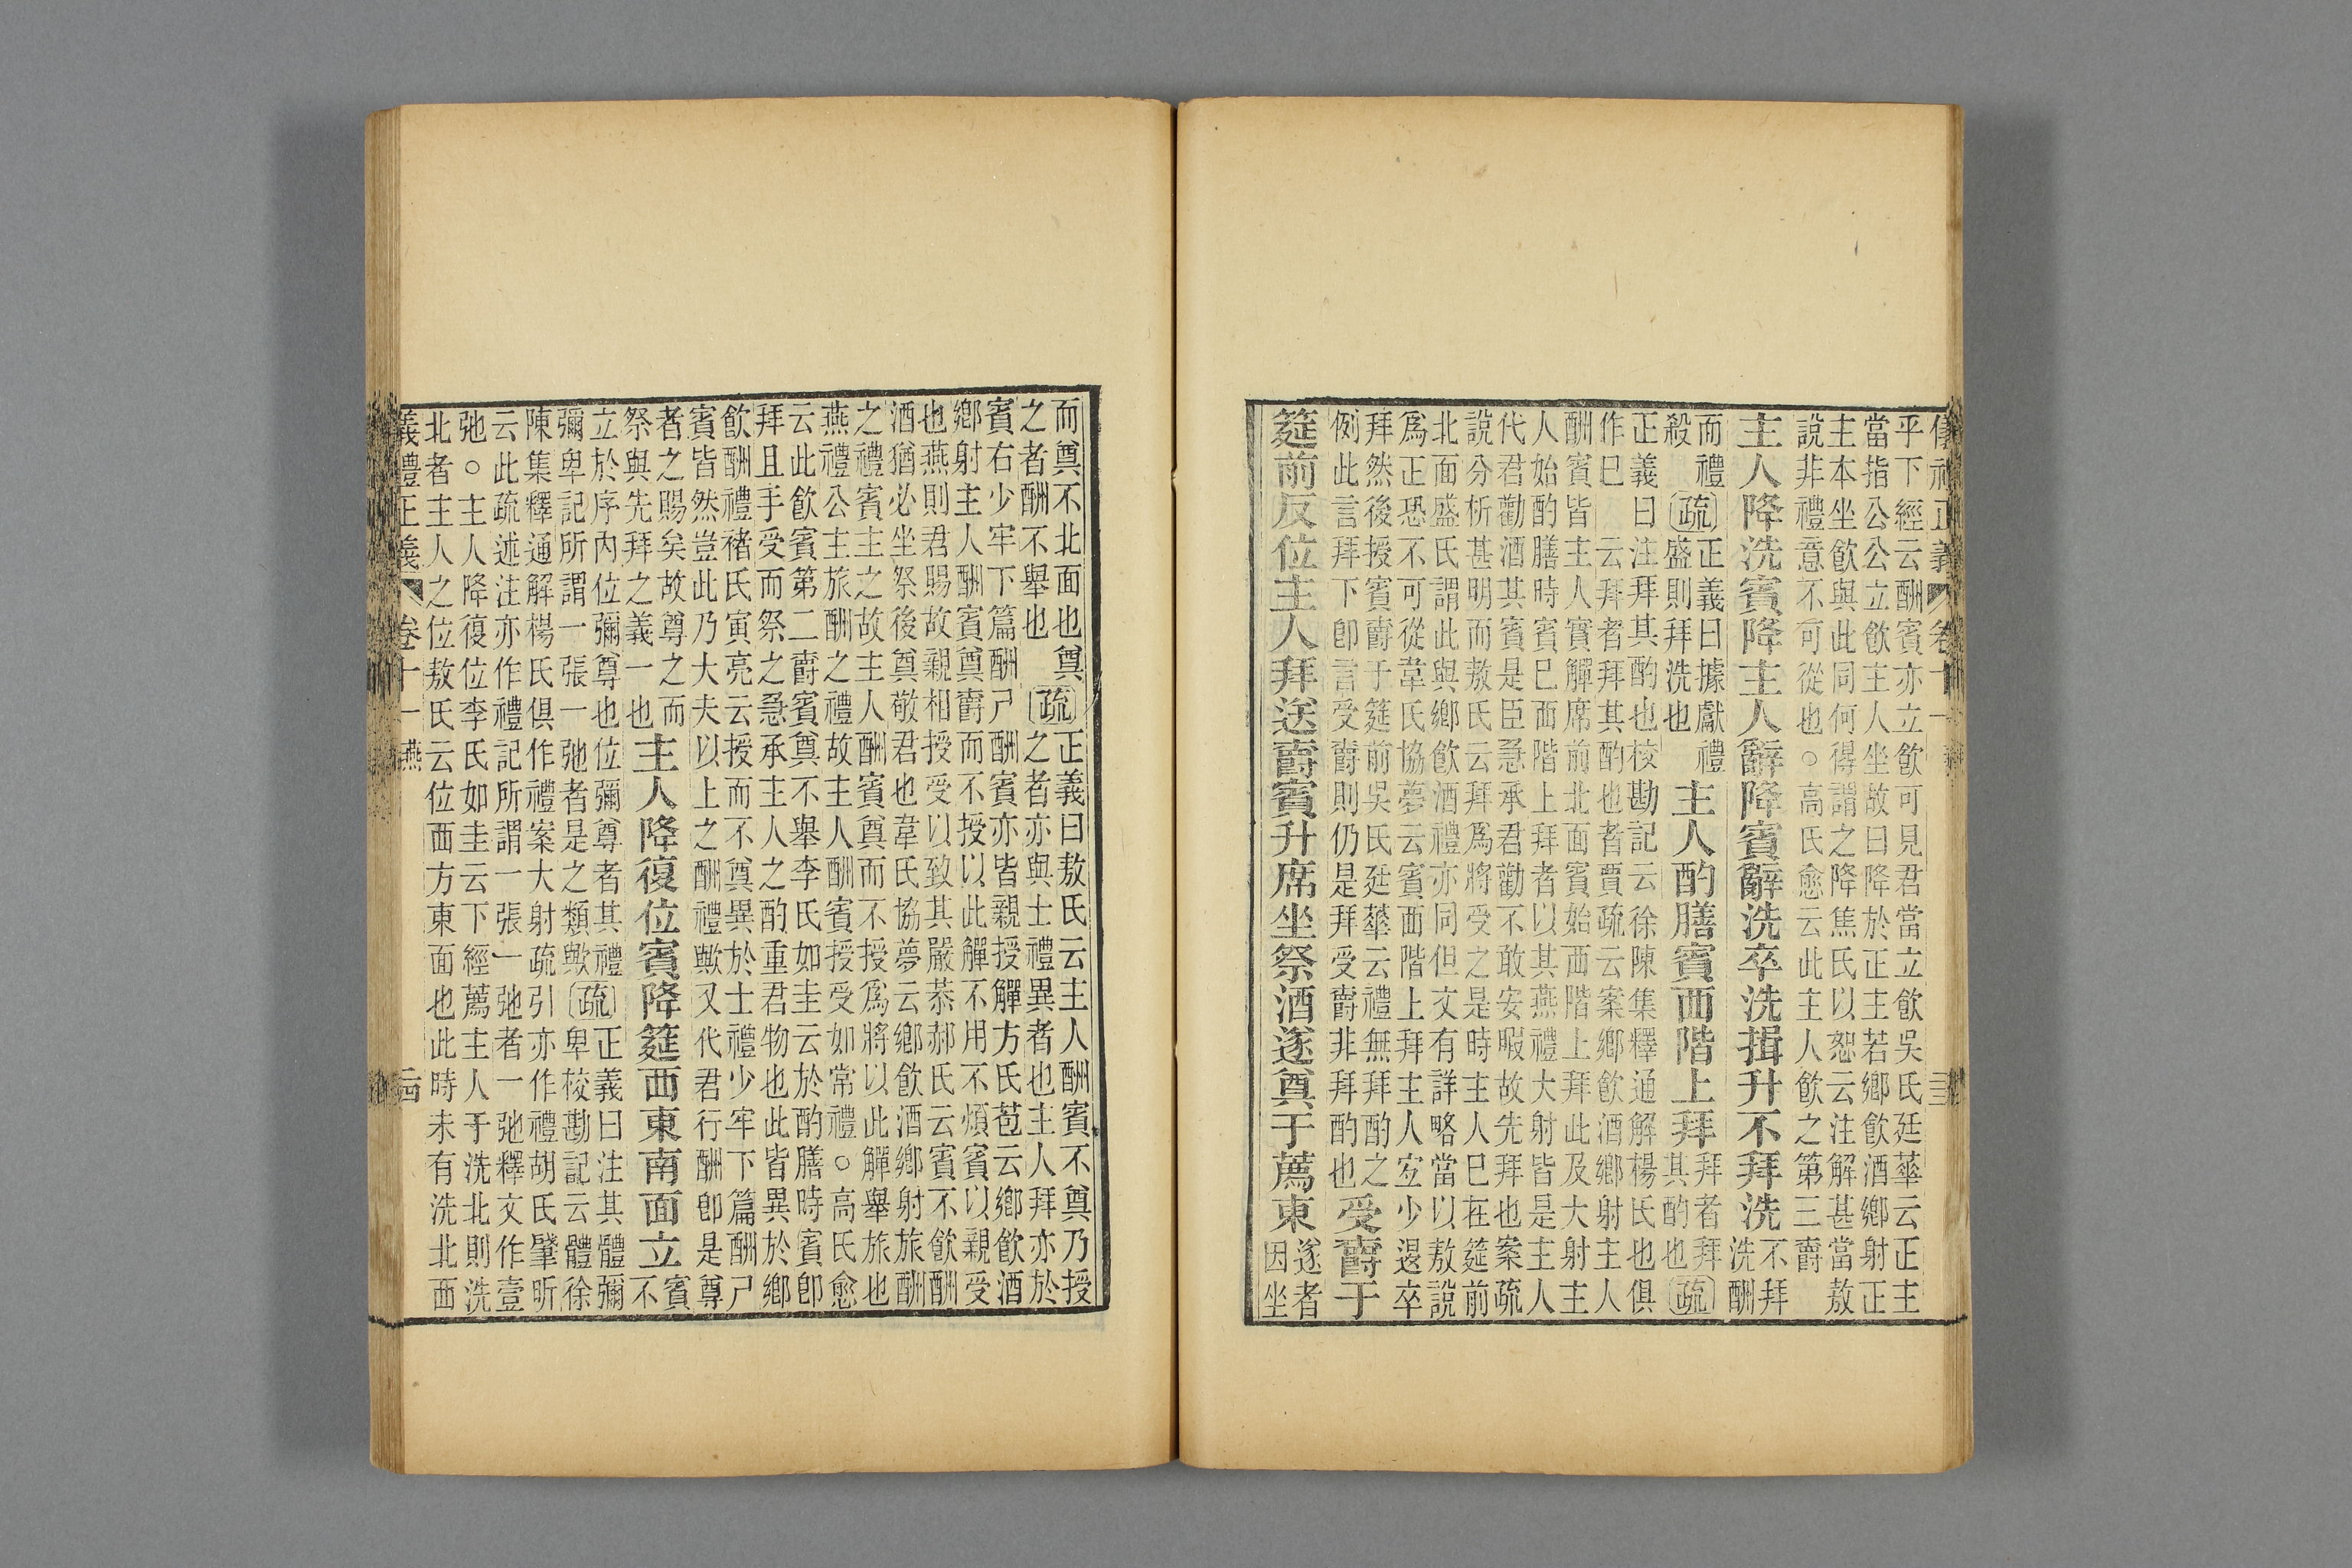 儀禮正義 卷十一 燕
乎下經云酬賓亦立飲可見君當立飲吳氏廷華云正主
當指公公立飲主人坐故曰降於正主若鄉飲酒鄉射正
主本坐飲與此同何得謂之降焦氏以恕云注解甚當敖
說非禮意不可從也○高氏愈云此主人飲之第三爵
主人降洗賓降主人辭降賓辭洗卒洗揖升不拜洗不拜
洗酬
而禮
殺盛則拜洗也疏正義曰據獻禮
主人酌膳賓西階上拜拜者拜
其酌也疏
正義曰注拜其酌也校勘記云徐陳集釋通解楊氏也俱
作已云拜者拜其酌也者賈疏云案鄉飲酒鄉射主人
酬賓皆主人實觶席前北面賓始西階上拜此及大射主
人始酌膳時賓已西階上拜者以其燕禮大射皆是主人
代君勸酒其賓是臣急承君勸不敢安暇故先拜也案疏
說分析甚明而敖氏云拜為將受之是時主人已在筵前
北面盛氏謂此與鄉飲酒禮亦同但文有詳略當以敖說
為正恐不可從韋氏協夢云賓西階上拜主人宐少退卒
拜然後授賓爵于筵前吳氏廷華云禮無拜酌之
例此言拜下卽言受爵則仍是拜受爵非拜酌也受爵于
筵前反位主人拜送爵賓升席坐祭酒遂奠于薦東遂者
因坐
而奠不北面也奠
之者酬不舉也疏正義曰敖氏云主人酬賓不奠乃授
之者亦與士禮異者也主人拜亦於
賓右少牢下篇酬尸酬賓亦皆親授觶方氏苞云鄉飲酒
鄉射主人酬賓奠爵而不授以此觶不用不煩賓以親受
也燕則君賜故親相授受以致其嚴恭郝氏云賓不飲酬
酒猶必坐祭後奠敬君也韋氏協夢云鄉飲酒鄉射旅酬
之禮賓主之故主人酬賓奠而不授為將以此觶舉旅也
燕禮公主旅酬之禮故主人酬賓授受如常禮○高氏愈
云此飲賓第二爵賓奠不舉李氏如圭云於酌膳時賓卽
拜且手受而祭之急承主人之酌重君物也此皆異於鄉
飲酬禮褚氏寅亮云授而不奠異於士禮少牢下篇酬尸
賓皆然豈此乃大夫以上之酬禮歟又代君行酬卽是尊
者之賜矣故尊之而
祭與先拜之義一也主人降復位賓降筵西東南面立賓
不
立於序內位彌尊也位彌尊者其禮
彌卑記所謂一張一弛者是之類歟疏正義曰注其體彌
卑校勘記云體徐
陳集釋通解楊氏俱作禮案大射疏引亦作禮胡氏肇昕
云此疏述注亦作禮記所謂一張一弛者一弛釋文作壹
弛○主人降復位李氏如圭云下經薦主人于洗北則洗
北者主人之位敖氏云位西方東面也此時未有洗北西
義禮正義 卷十一 燕